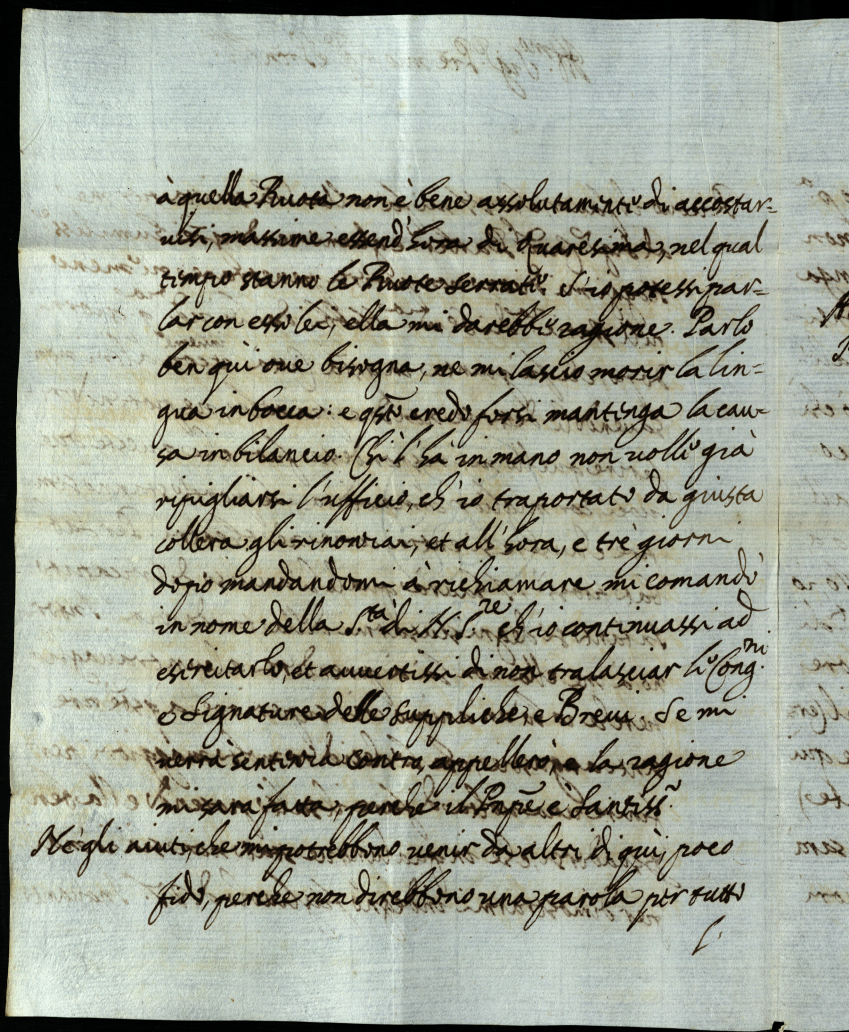 à quella Ruota non è bene assolutamente di accostar=
visi, massime essend'hora di Quaresima, nel qual
tempo stanno le Ruote serrate. S'io potessi par=
lar con esso lei, ella mi darebbe ragione. Parlo
ben quì ove bisogna, ne mi lascio morir la lin=
gua in bocca: e qsto credo forsi mantenga la cau=
sa in bilancio. Chi l'hà in mano non volle già
ripigliarsi l'ufficio, ch'io traportato da giusta
collera gli rinonciai, et all'hora, e trè giorni
dopo mandandomi à richiamare mi comandò
in nome della S.tà di N. S.re ch'io continuassi ad
essercitarlo, et avvertissi di non tralasciar le Cong.ni
e Signature delle suppliche, e Brevi. Se mi
verrà sentenza contro, appellerò, e la ragione
mi sarà fatta, perche il Pnpe è Santiss.o
Nè gli aiuti, che mi potrebbono venir da altri di quì, poco
fido, perche non direbbono una parola per tutto
l'